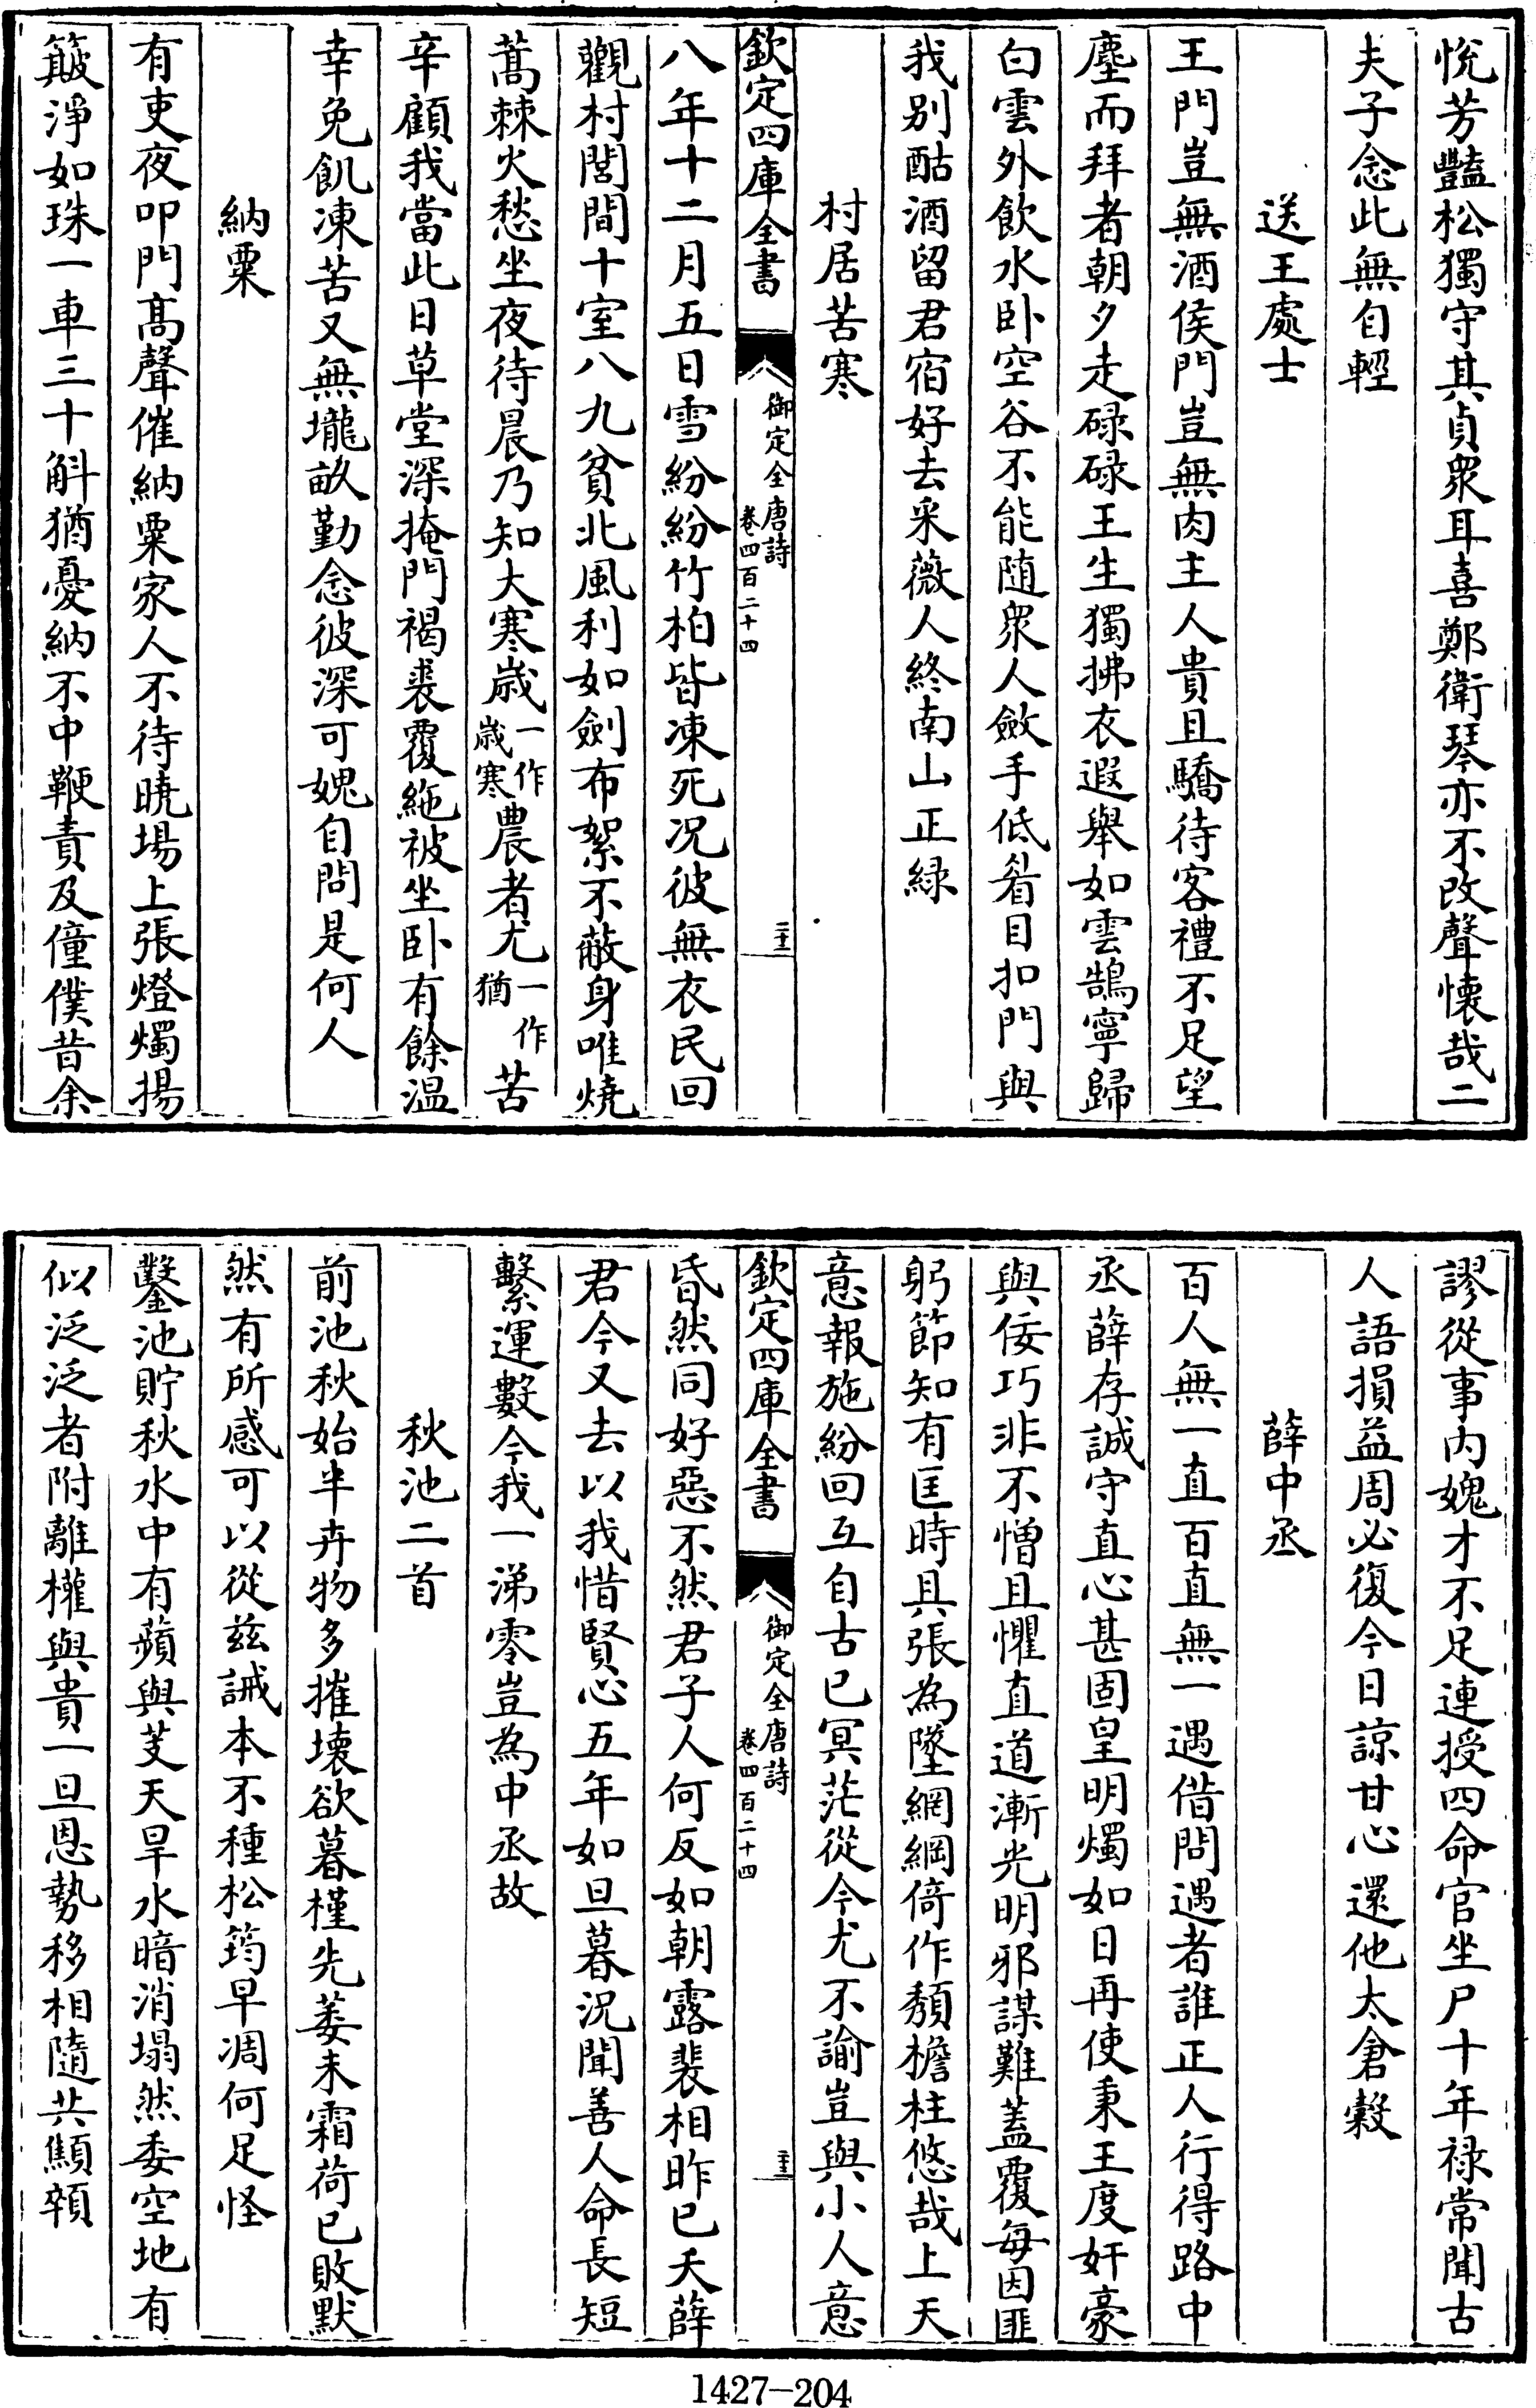 悅芳豔松獨守其貞衆耳喜鄭衛琴亦不改聲懷哉二
夫子念此無自輕
送王處士
王門豈無酒侯門豈無肉主人貴且驕待客禮不足望
塵而拜者朝夕走碌碌王生獨拂衣遐舉如雲鵠寧歸
白雲外飲水卧空谷不能隨衆人斂手低眉目扣門與
我别酤酒留君宿好去采薇人終南山正緑
村居苦寒
欽定四庫全書
御定全唐詩
卷四百二十四
二十二
八年十二月五日雪紛紛竹柏皆凍死况彼無衣民回
觀村閭間十室八九貧北風利如劍布絮不蔽身唯燒
蒿棘火愁坐夜待晨乃知大寒歲一作歲寒農者尤一作猶苦
辛顧我當此日草堂深掩門褐裘覆絁被坐卧有餘温
幸免飢凍苦又無壠畝勤念彼深可媿自問是何人
納粟
有吏夜叩門髙聲催納粟家人不待曉場上張燈燭揚
簸淨如珠一車三十斛猶憂納不中鞭責及僮僕昔余
謬從事内媿才不足連授四命官坐尸十年禄常聞古
人語損益周必復今日諒甘心還他太倉穀
薛中丞
百人無一直百直無一遇借問遇者誰正人行得路中
丞薛存誠守直心甚固皇明燭如日再使秉王度奸豪
與佞巧非不憎且懼直道漸光明邪謀難蓋覆每因匪
躬節知有匡時具張為墜網綱倚作頽檐柱悠哉上天
意報施紛回互自古已冥茫從今尤不諭豈與小人意
欽定四庫全書
御定全唐詩
卷四百二十四
二十二
昏然同好惡不然君子人何反如朝露裴相昨已夭薛
君今又去以我惜賢心五年如旦暮況聞善人命長短
繫運數今我一涕零豈為中丞故
秋池二首
前池秋始半卉物多摧壞欲暮槿先萎未霜荷已敗默
然有所感可以從兹誡本不種松筠早凋何足怪
鑿池貯秋水中有蘋與芰天旱水暗消塌然委空地有
似泛泛者附離權與貴一旦恩勢移相隨共顦顇
1427—204